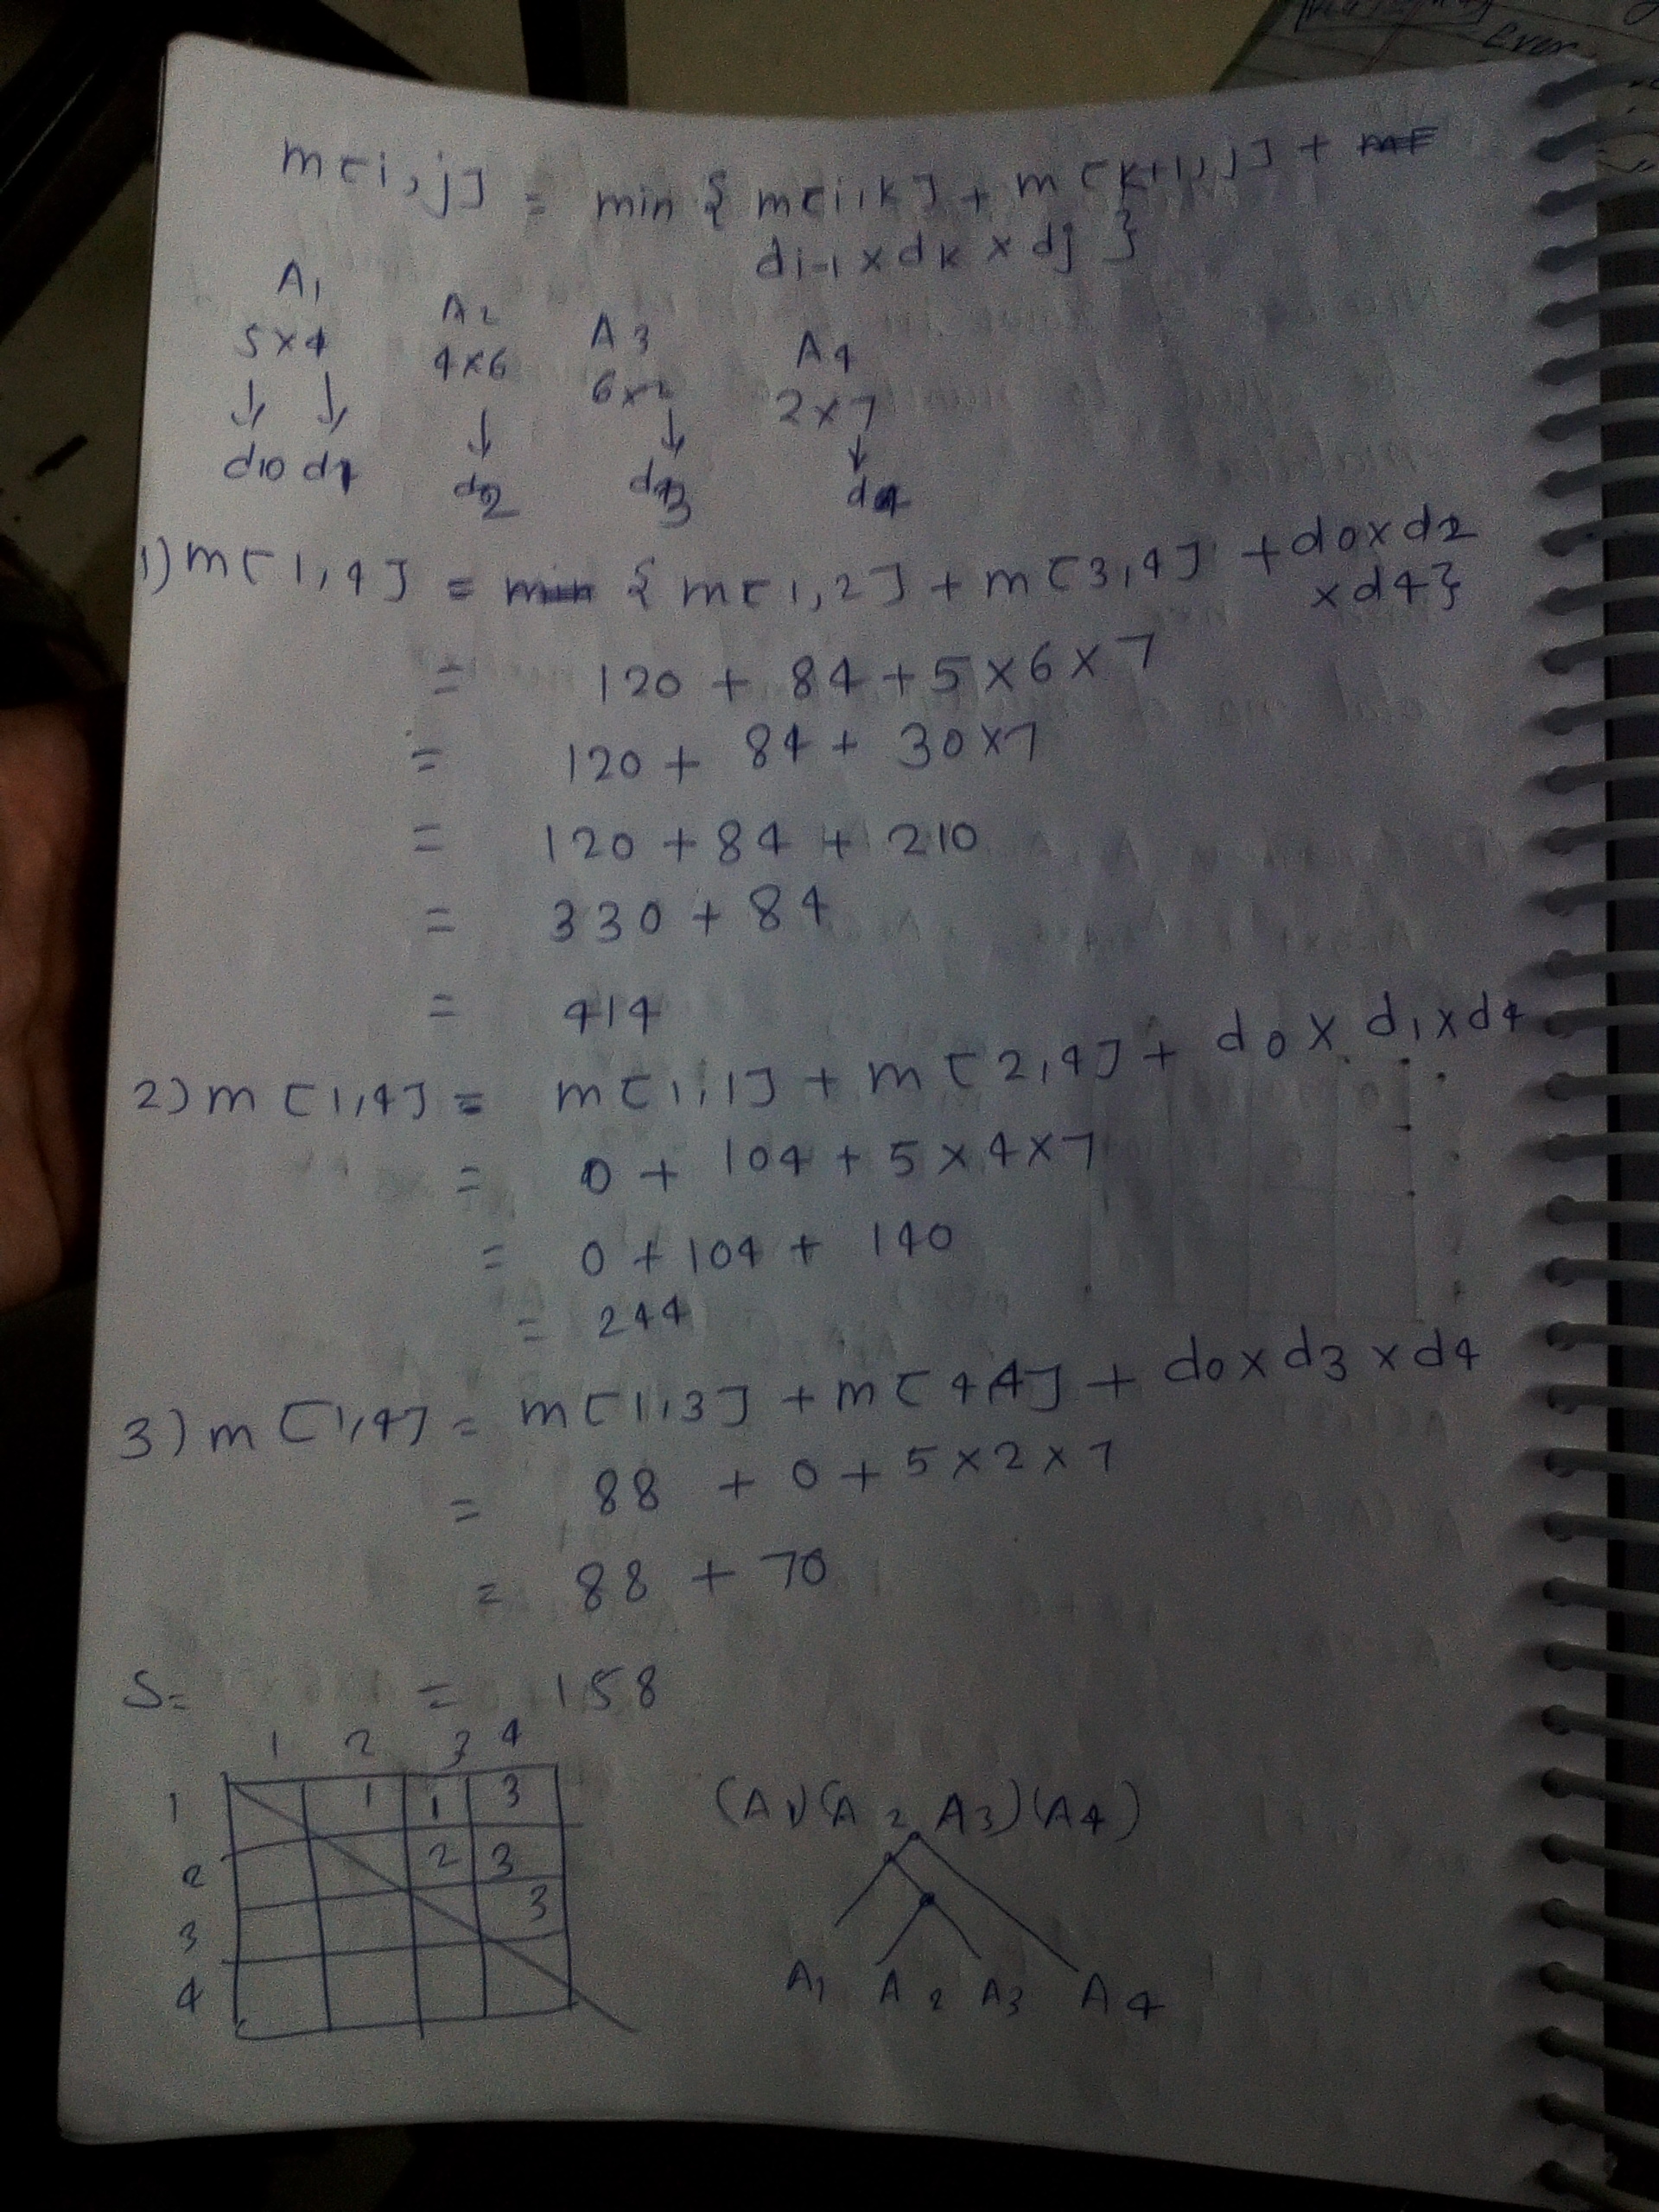 ever
m[i,j] = min { m[i,k] + m[k+1,j] +
di-1 x dk x dj }
A1 A2 A3 A4
5x4 4x6 6x2 2x7
↓ ↓ ↓ ↓ ↓
d0 d1 d2 d3 d4
1) m[1,4] = min { m[1,2] + m[3,4] + d0xd2
xd4}
= 120 + 84 + 5 x 6 x 7
= 120 + 84 + 30x7
= 120 + 84 + 210
= 330 + 84
= 414
2) m[1,4] = m[1,1] + m[2,4] + d0 x d1xd4
= 0 + 104 + 5 x 4 x 7
= 0 + 104 + 140
= 244
3) m[1,4] = m[1,3] + m[4,4] + d0 x d3 x d4
= 88 + 0 + 5 x 2 x 7
= 88 + 70
S= = 158
1 2 3 4
1 1 1 3
2 2 3
3 3
4
(A1)(A2 A3)(A4)
A1 A2 A3 A4